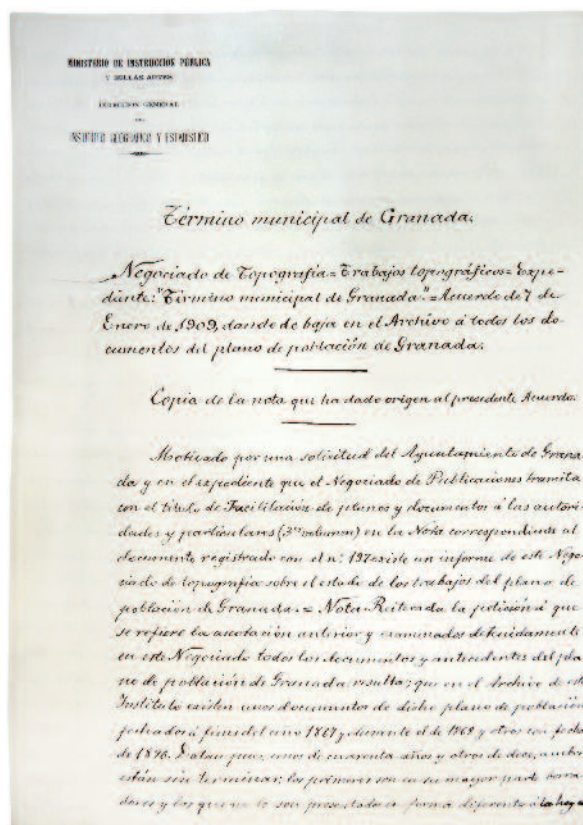 MINISTERIO DE INSTRUCCIÓN PÚBLICA
Y BELLAS ARTES
DIRECCIÓN GENERAL
DEL
INSTITUTO GEOGRÁFICO Y ESTADÍSTICO
Término municipal de Granada.
Negociado de Topografía = Trabajos topográficos = Expe-
diente: "Término municipal de Granada" = Acuerdo de 7 de
Enero de 1909, dando de baja en el Archivo á todos los do-
cumentos del plano de población de Granada.
Copia de la nota que ha dado origen al presidente Acuerdo.
Motivado por una solicitud del Ayuntamiento de Grana
da y en el expediente que el Negociado de Publicaciones tramita
con el título de Facilitación de planos y documentos á las autori
dades y particulares (3er volumen) en la Nota correspondiente al
documento registrado con el nº 197 existe un informe de este Nego
ciado de topografía sobre el estado de los trabajos del plano de
población de Granada. = Nota. Reiterada la petición á que
se refiere la anotación anterior y examinados detenidamente
en este Negociado todos los documentos y antecedentes del pla
no de población de Granada resulta; que en el Archivo de este
Instituto existen unos documentos de dicho plano de población
fechados á fines del año 1867 y durante el de 1869 y otros con fecha
de 1896. Datan pues, unos de cuarenta años y otros de doce, ambos
están sin terminar; los primeros son en su mayor parte borra
dores y los que no lo son presentados en forma diferente á la hoy